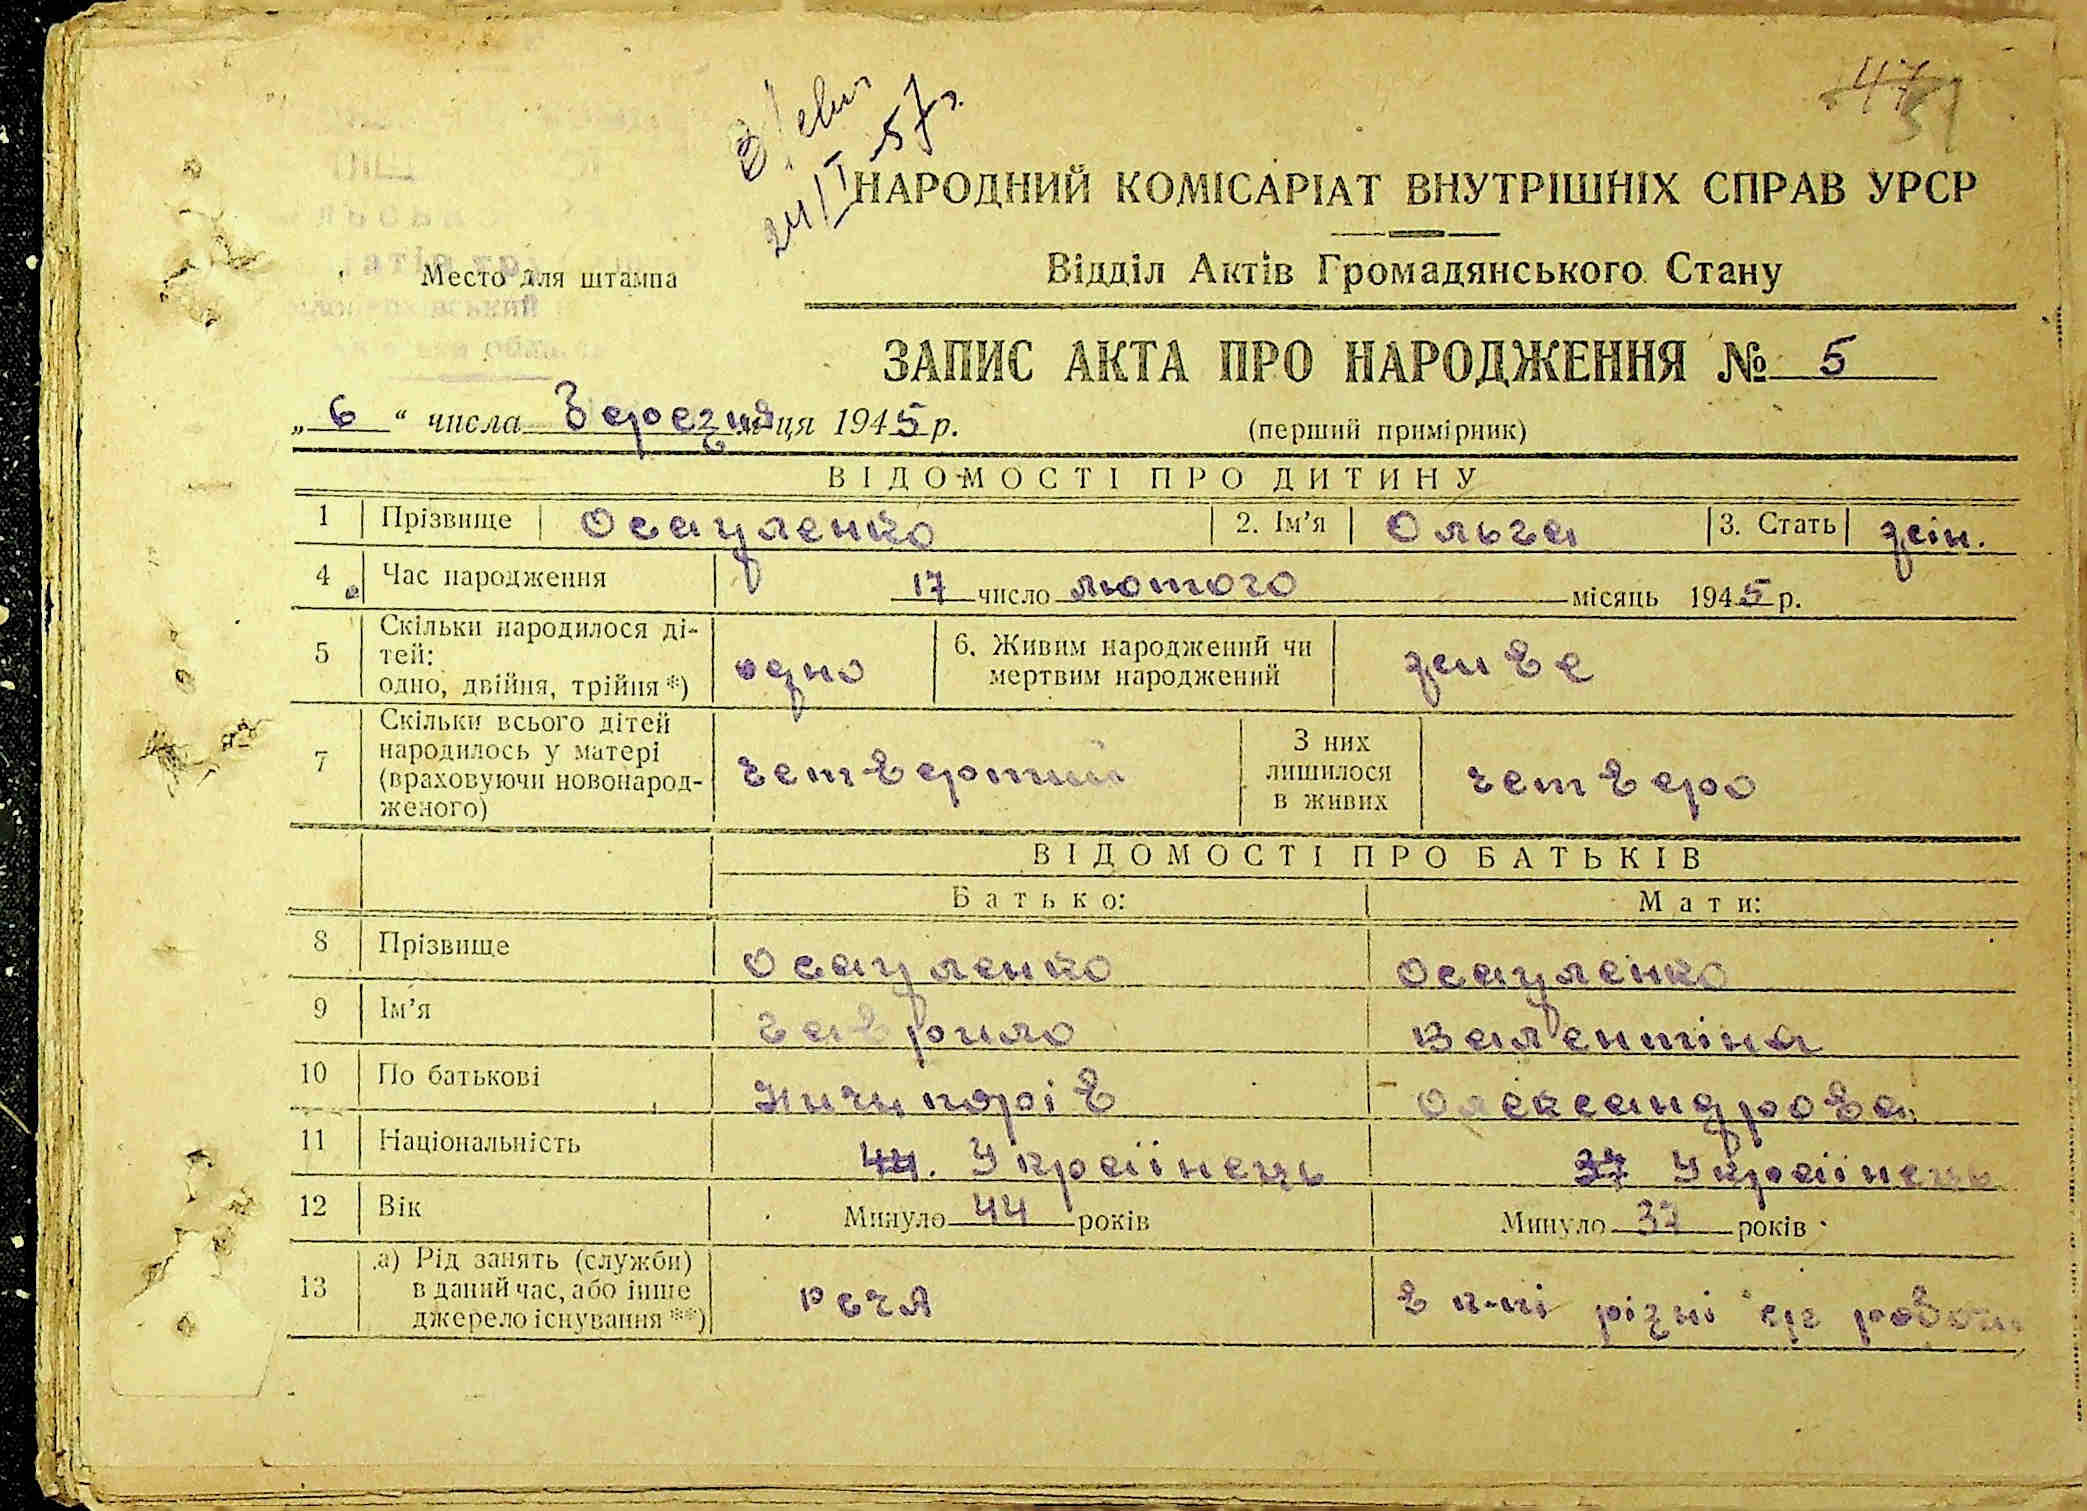 47
51
24/I 57г.
НАРОДНИЙ КОМІСАРІАТ ВНУТРІШНІХ СПРАВ УРСР
Відділ Актів Громадянського Стану
Место для штампа
ЗАПИС АКТА ПРО НАРОДЖЕННЯ № 5
„ 6 “ числа Березня ця 1945 р.
(перший примірник)
ВІДОМОСТІ ПРО ДИТИНУ
1 Прізвище Осауленко 2. Ім'я Ольга 3. Стать жін.
4 Час народження 17 число лютого місяць 1945 р.
5 Скільки народилося ді-
тей:
одно, двійня, трійня *) одно
6. Живим народжений чи
мертвим народжений живе
7 Скільки всього дітей
народилось у матері
(враховуючи новонарод-
женого) четвертий
З них
лишилося
в живих четверо
ВІДОМОСТІ ПРО БАТЬКІВ
Батько: Мати:
8 Прізвище Осауленко Осауленко
9 Ім'я Гаврило Валентіна
10 По батькові Ничипорів Олександрова
11 Національність 44. Українець 37 Українець
12 Вік Минуло 44 років Минуло 37 років
13 а) Рід занять (служби)
в даний час, або інше
джерело існування **) рсчя в к-пі різні роботи